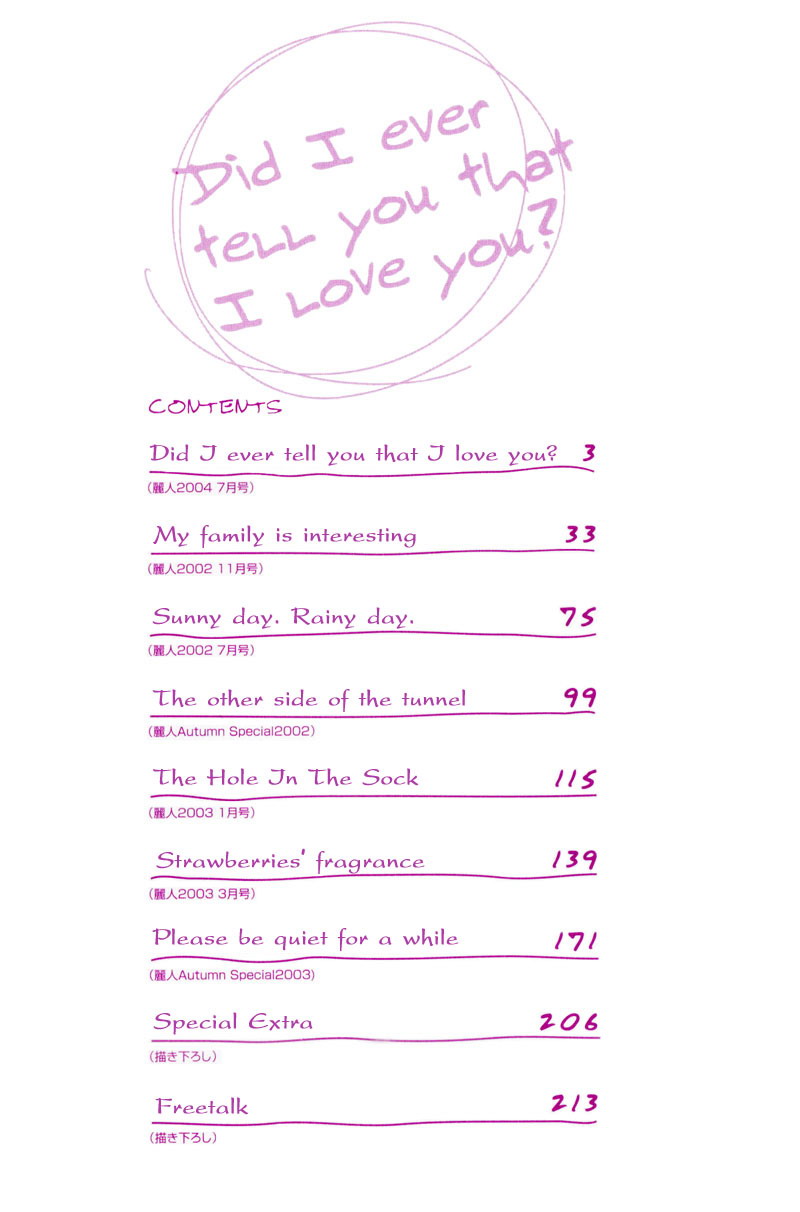 Did I ever
tell you that
I love you?
CONTENTS
Did I ever tell you that I love you? 3
（麗人2004 7月号）
My family is interesting 33
（麗人2002 11月号）
Sunny day. Rainy day. 75
（麗人2002 7月号）
The other side of the tunnel 99
（麗人Autumn Special2002）
The Hole In The Sock 115
（麗人2003 1月号）
Strawberries' fragrance 139
（麗人2003 3月号）
Please be quiet for a while 171
（麗人Autumn Special2003）
Special Extra 206
（描き下ろし）
Freetalk 213
（描き下ろし）